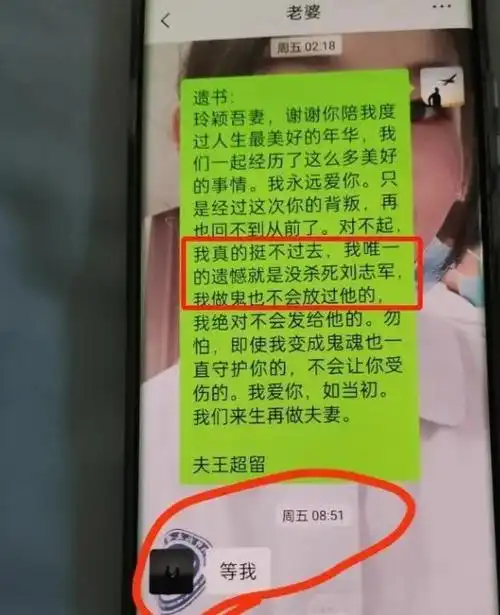 老婆
周五 02:18
遗书：
玲颖吾妻，谢谢你陪我度
过人生最美好的年华，我
们一起经历了这么多美好
的事情。我永远爱你。只
是经过这次你的背叛，再
也回不到从前了。对不起，
我真的挺不过去，我唯一
的遗憾就是没杀死刘志军，
我做鬼也不会放过他的，
我绝对不会发给他的。勿
怕，即使我变成鬼魂也一
直守护你的，不会让你受
伤的。我爱你，如当初。
我们来生再做夫妻。
夫王超留
周五 08:51
等我